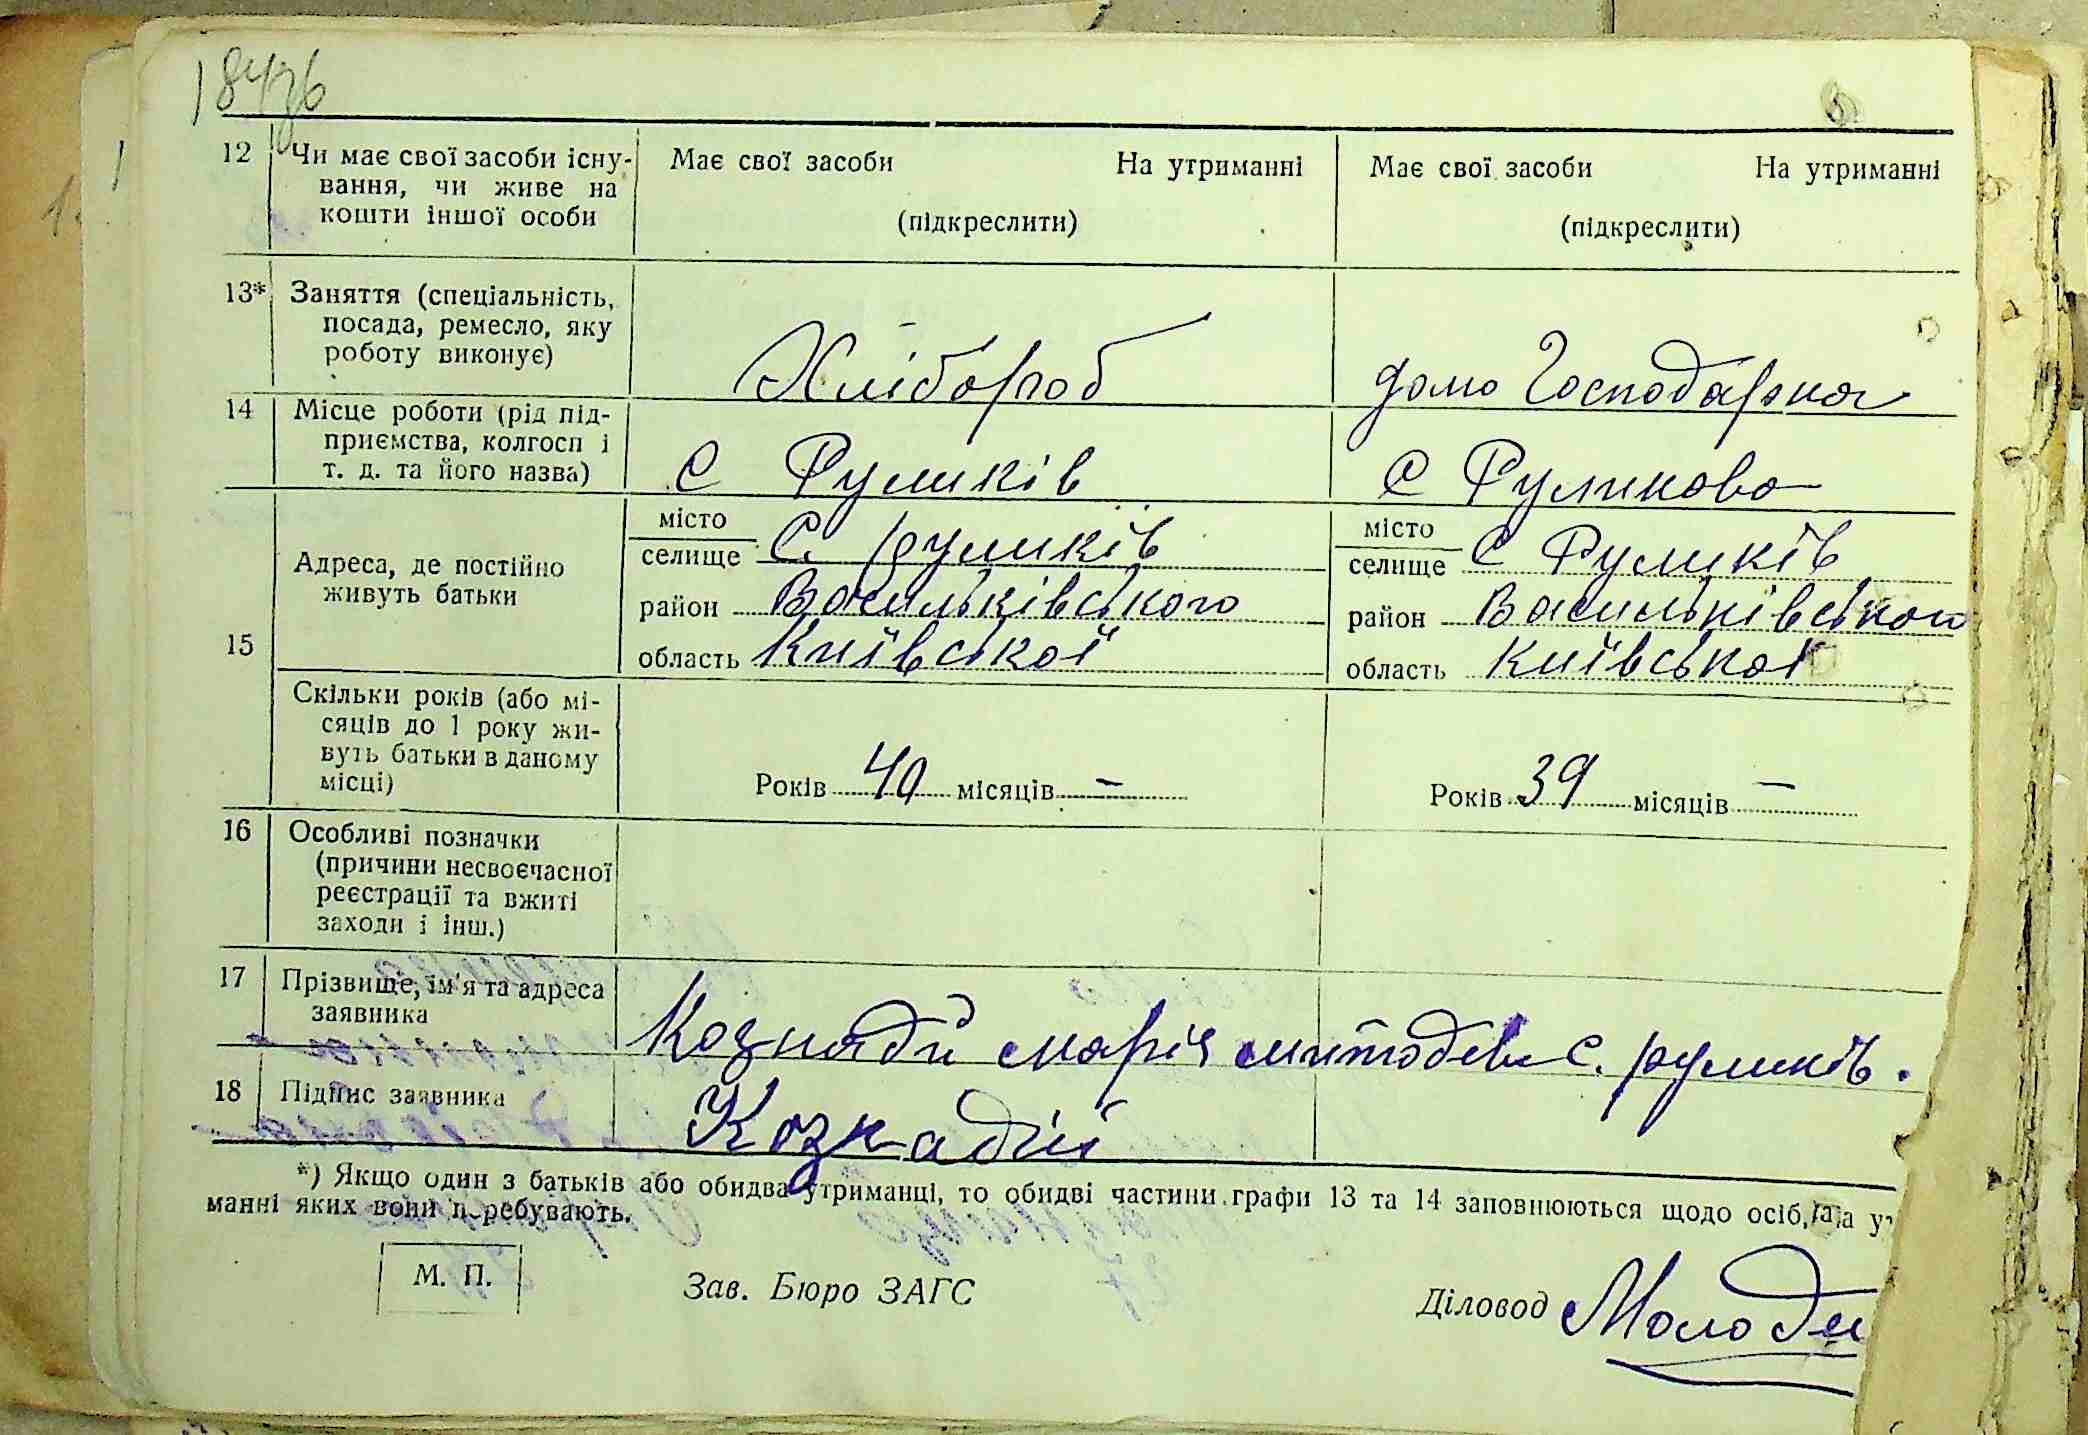 12 Чи має свої засоби існу-
вання, чи живе на
кошти іншої особи
Має свої засоби На утриманні
(підкреслити)
Має свої засоби На утриманні
(підкреслити)
13* Заняття (спеціальність,
посада, ремесло, яку
роботу виконує)
Хлібороб
домо Господарка
14 Місце роботи (рід під-
приємства, колгосп і
т. д. та його назва)
С Руликів
С Руликово
15 Адреса, де постійно
живуть батьки
місто
селище С. руликів
район Васильківського
область Київської
місто
селище С Руликів
район Васильківського
область Київської
Скільки років (або мі-
сяців до 1 року жи-
вуть батьки в даному
місці)
Років 40 місяців —
Років 39 місяців —
16 Особливі позначки
(причини несвоєчасної
реєстрації та вжиті
заходи і інш.)
17 Прізвище, ім'я та адреса
заявника
марія с. руликів.
18 Підпис заявника
Кознадій
*) Якщо один з батьків або обидва утриманці, то обидві частини графи 13 та 14 заповнюються щодо осіб, на ут
манні яких вони перебувають.
М. П.
Зав. Бюро ЗАГС
Діловод Молоди